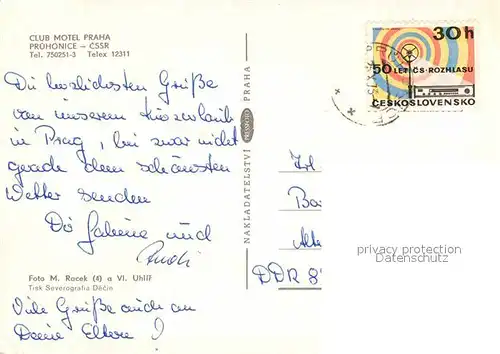 CLUB MOTEL PRAHA
PRŮHONICE – ČSSR
Tel. 750251-3 Telex 12311
Die herzlichsten Grüße
von unserem Kurzurlaub
in Prag, bei zwar nicht
gerade dem schönsten
Wetter senden
Dir Gabiene und
Rudi
Foto M. Racek (4) a Vl. Uhlíř
Tisk Severografia Děčín
Viele Grüße auch an
Deine Eltern!
NAKLADATELSTVÍ PRESSFOTO PRAHA
30 h
50 LET ČS. ROZHLASU
ČESKOSLOVENSKO
Frl
Ba
Alte
DDR 8
privacy protection
Datenschutz